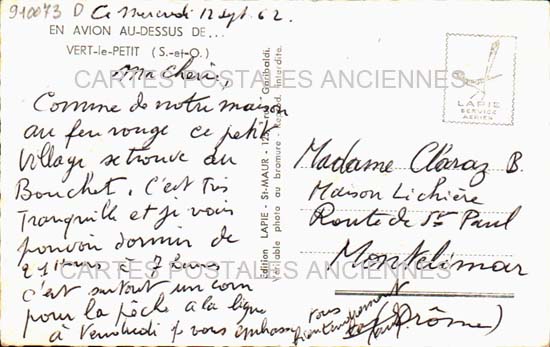 910073 D Ce Mercredi 12 Sept. 62.
EN AVION AU-DESSUS DE...
VERT-le-PETIT (S.-et-O.)
CARTES POSTALES ANCIENNES
Ma Cherie,
Comme de notre maison
au feu rouge ce petit
village se trouve du
Bouchet. C'est très
tranquille et je vais
pouvoir dormir de
21 heures à 7 heures
C'est surtout un coin
pour la pêche a la ligne
à Vendredi je vous embrasse
Edition LAPIE - St-MAUR - 123, rue Garibaldi.
Véritable photo au bromure - Reprod. interdite.
LAPIE
SERVICE
AERIEN
Madame Claraz B.
Maison Lichière
Route de St Paul
Montélimar
(Drôme)
CARTES POSTALES ANCIENNES
vous
bien tendrement